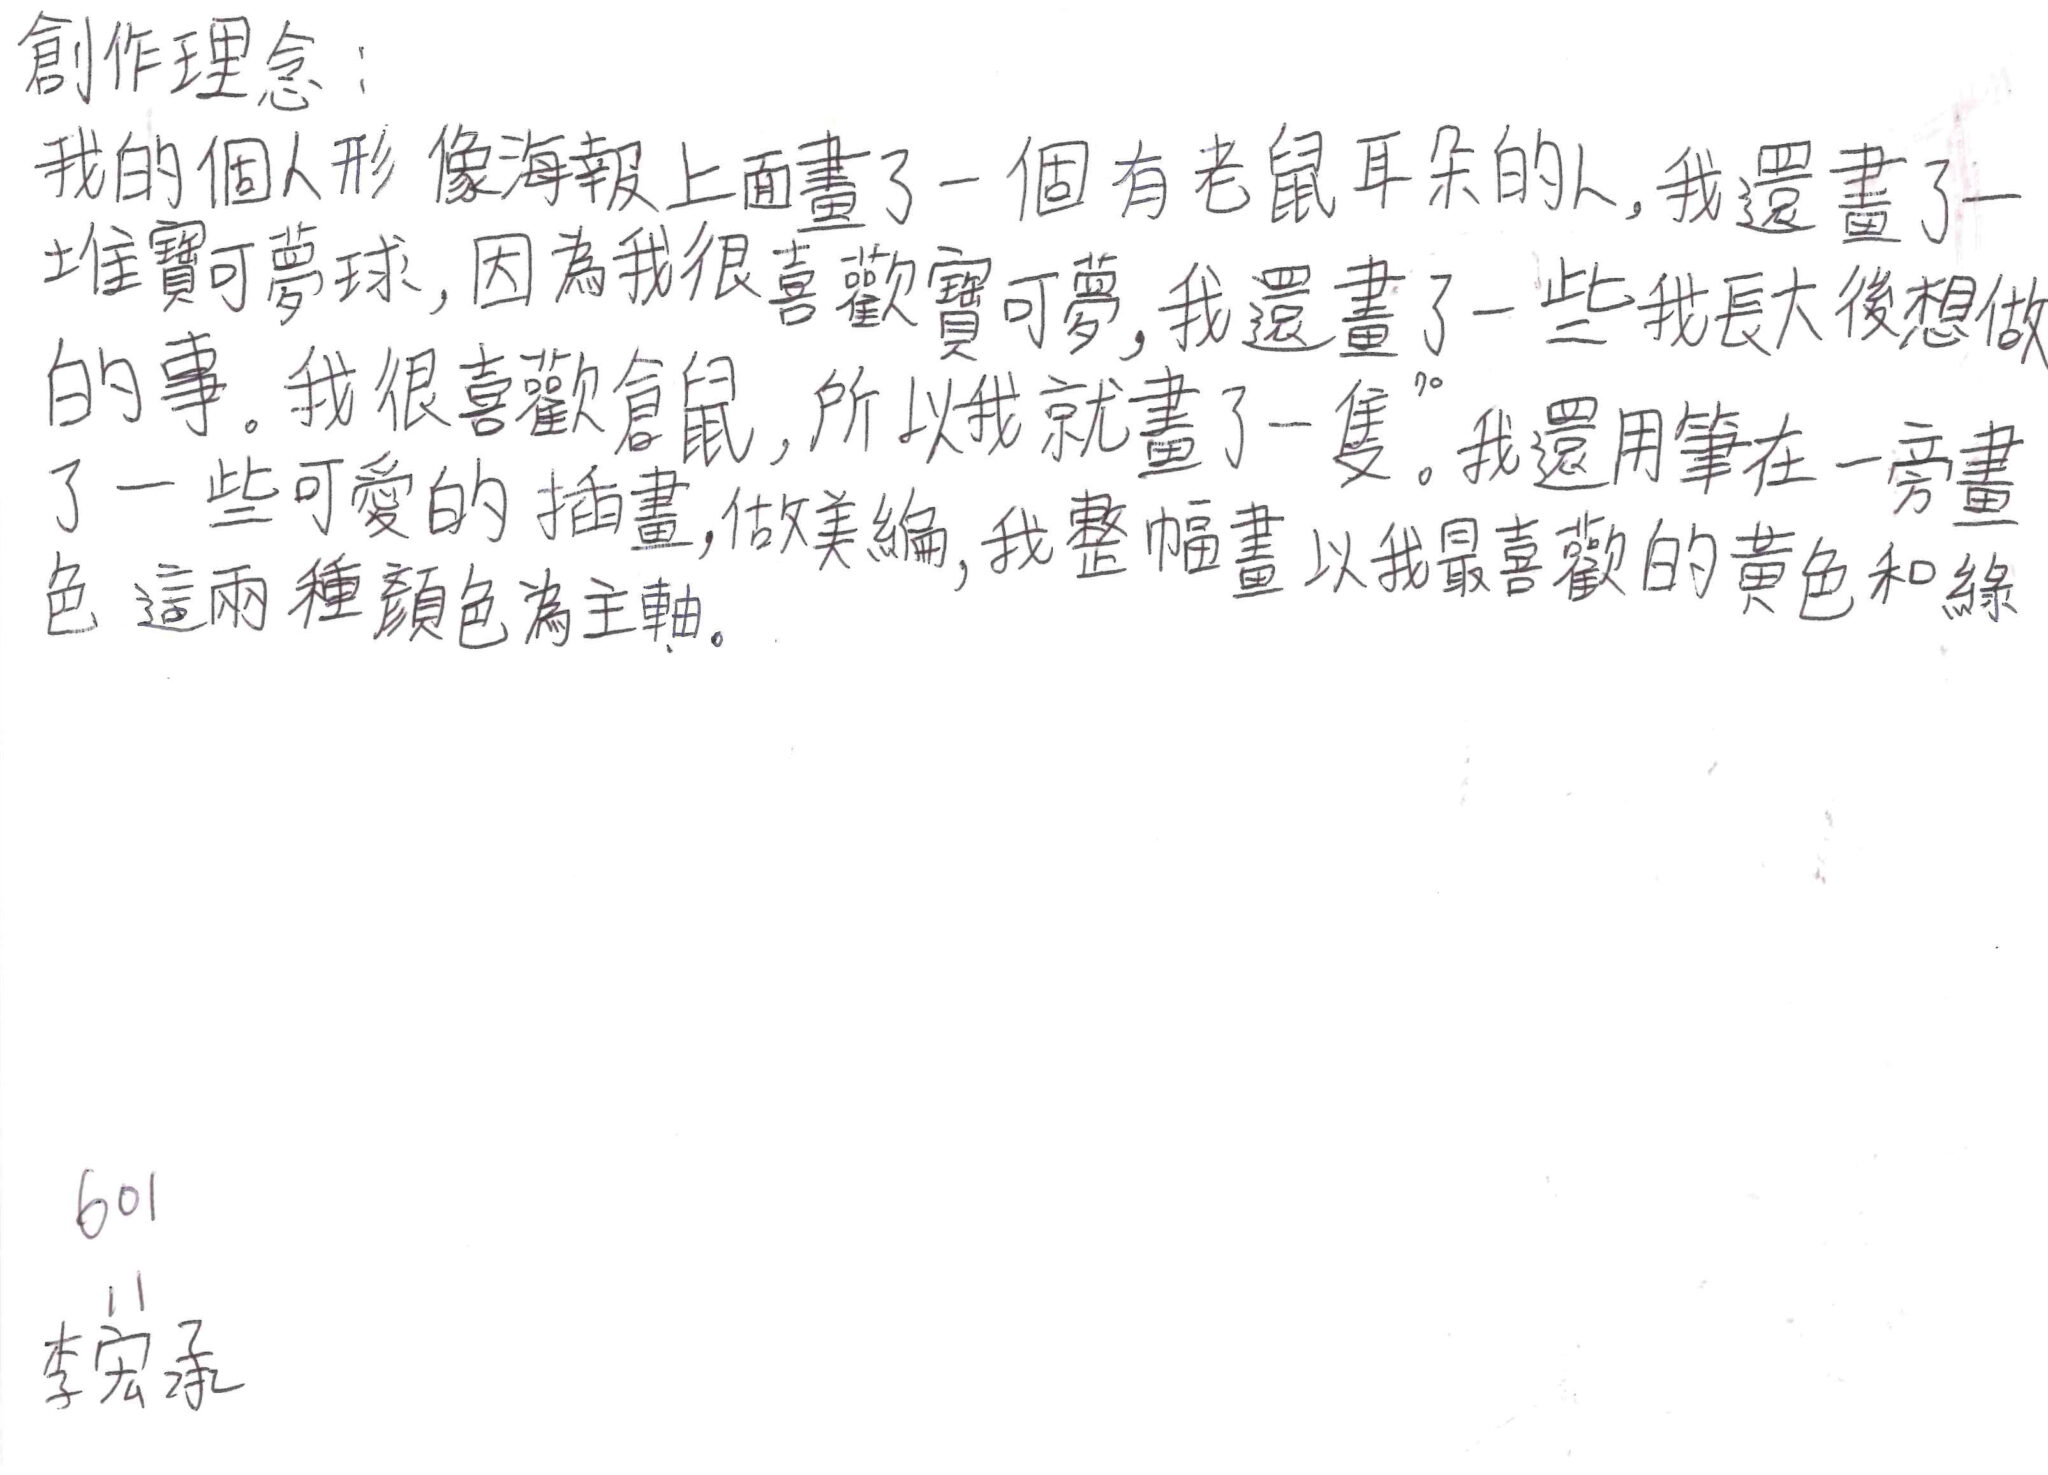 創作理念：
我的個人形像海報上面畫了一個有老鼠耳朵的人，我還畫了一
堆寶可夢球，因為我很喜歡寶可夢，我還畫了一些我長大後想做
的事。我很喜歡倉鼠，所以我就畫了一隻。我還用筆在一旁畫
了一些可愛的插畫，做美編，我整幅畫以我最喜歡的黃色和綠
色這兩種顏色為主軸。
601
11
李宏承